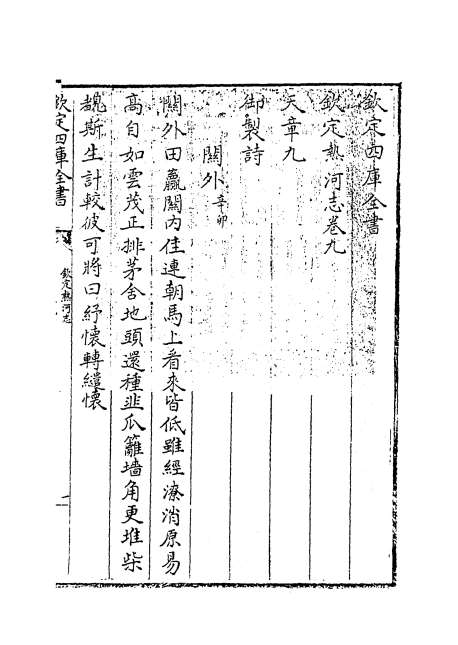 欽定四庫全書
欽定熱河志卷九
天章九
御製詩
關外辛卯
關外田贏關內佳連朝馬上看來皆低雖經潦消原易
高自如雲茂正排茅舍地頭還種韭瓜籬墻角更堆柴
覩斯生計較彼可將曰紓懷轉繾懷
欽定四庫全書
欽定熱河志
一